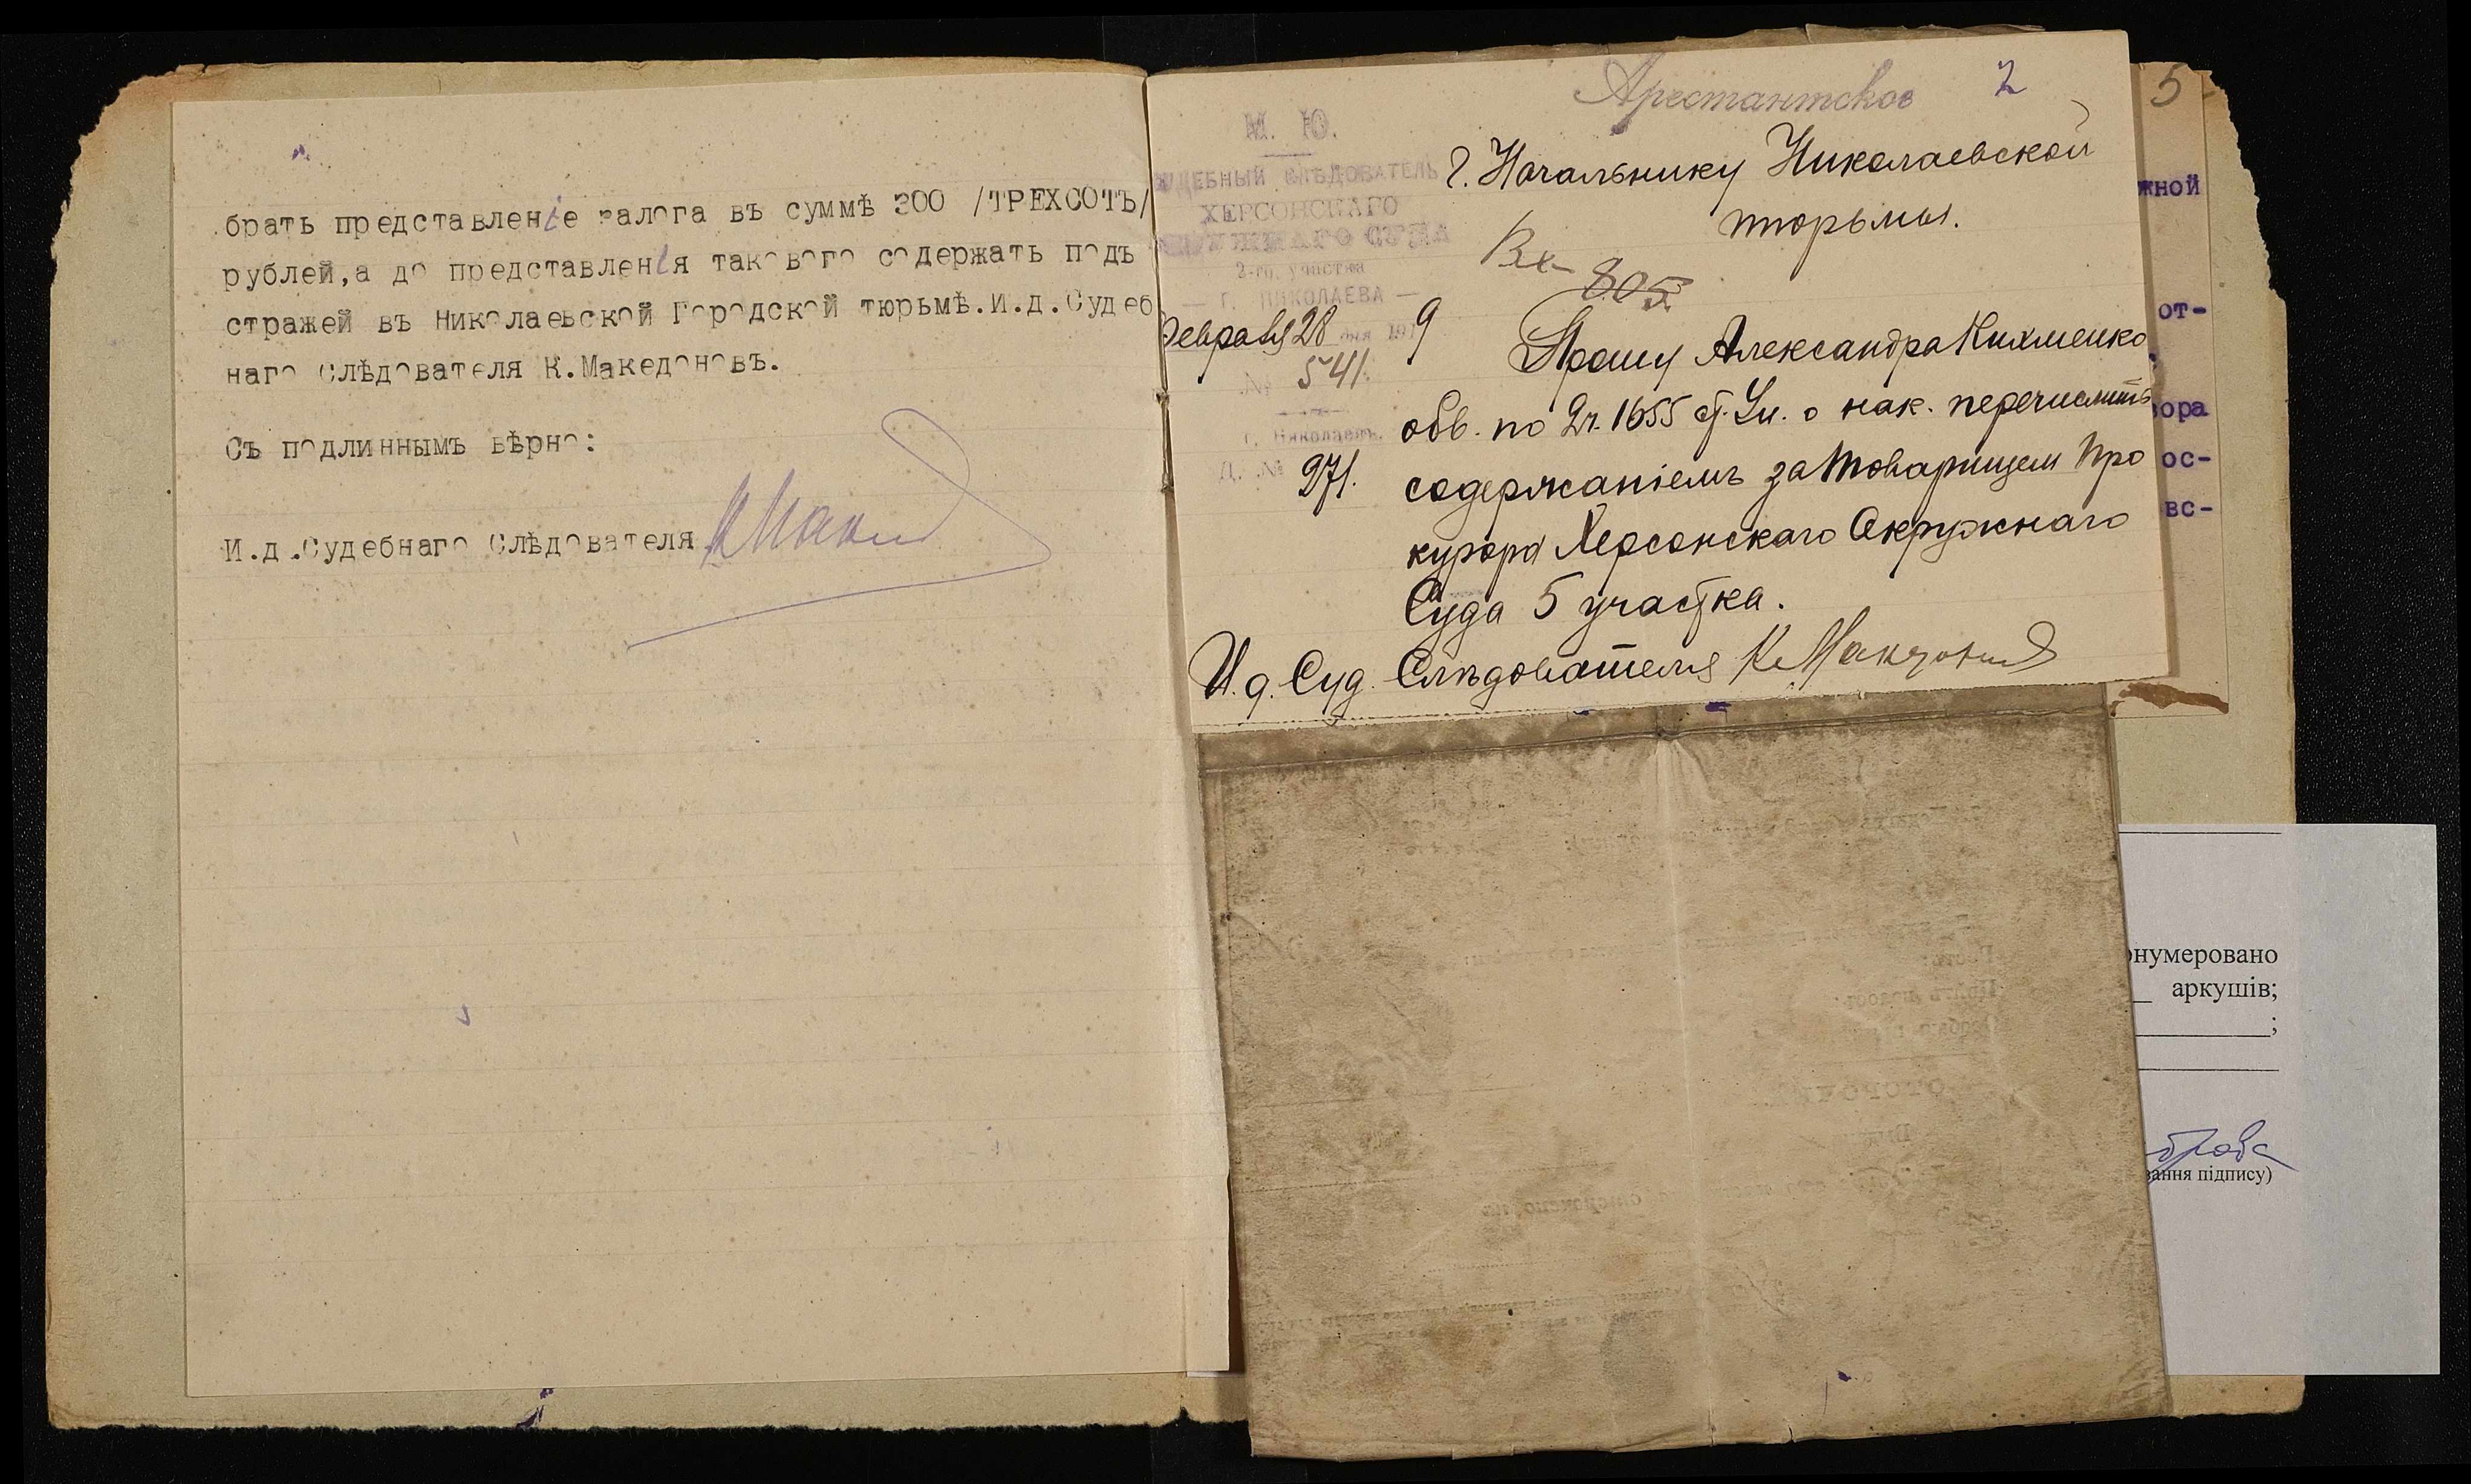 брать представленіе залога въ суммѣ 300 /ТРЕХСОТЪ/
рублей,а до представленія такового содержать подъ
стражей въ Николаевской Городской тюрьмѣ.И.д.Судеб
наго Слѣдователя К.Македоновъ.
Съ подлиннымъ вѣрно:
И.д.Судебнаго Слѣдователя
Арестантское
2
5
М. Ю.
СУДЕБНЫЙ СЛѢДОВАТЕЛЬ
ХЕРСОНСКАГО
ОКРУЖНАГО СУДА
2-го участка
— Г. НИКОЛАЕВА —
Февраля 28 дня 191 9
№ 541.
г. Николаевъ.
Д. № 971.
Г. Начальнику Николаевской
тюрьмы.
Вх 805
Прошу Александра
обв. по 2 ч. 1655 ст. Ул. о нак. перечислить
содержаніемъ за Товарищем Про
курора Херсонскаго Окружнаго
Суда 5 участка.
И. д. Суд. Слѣдователя К Македоновъ
жной
от-
ора
ос-
вс-
онумеровано
аркушів;
;
вання підпису)